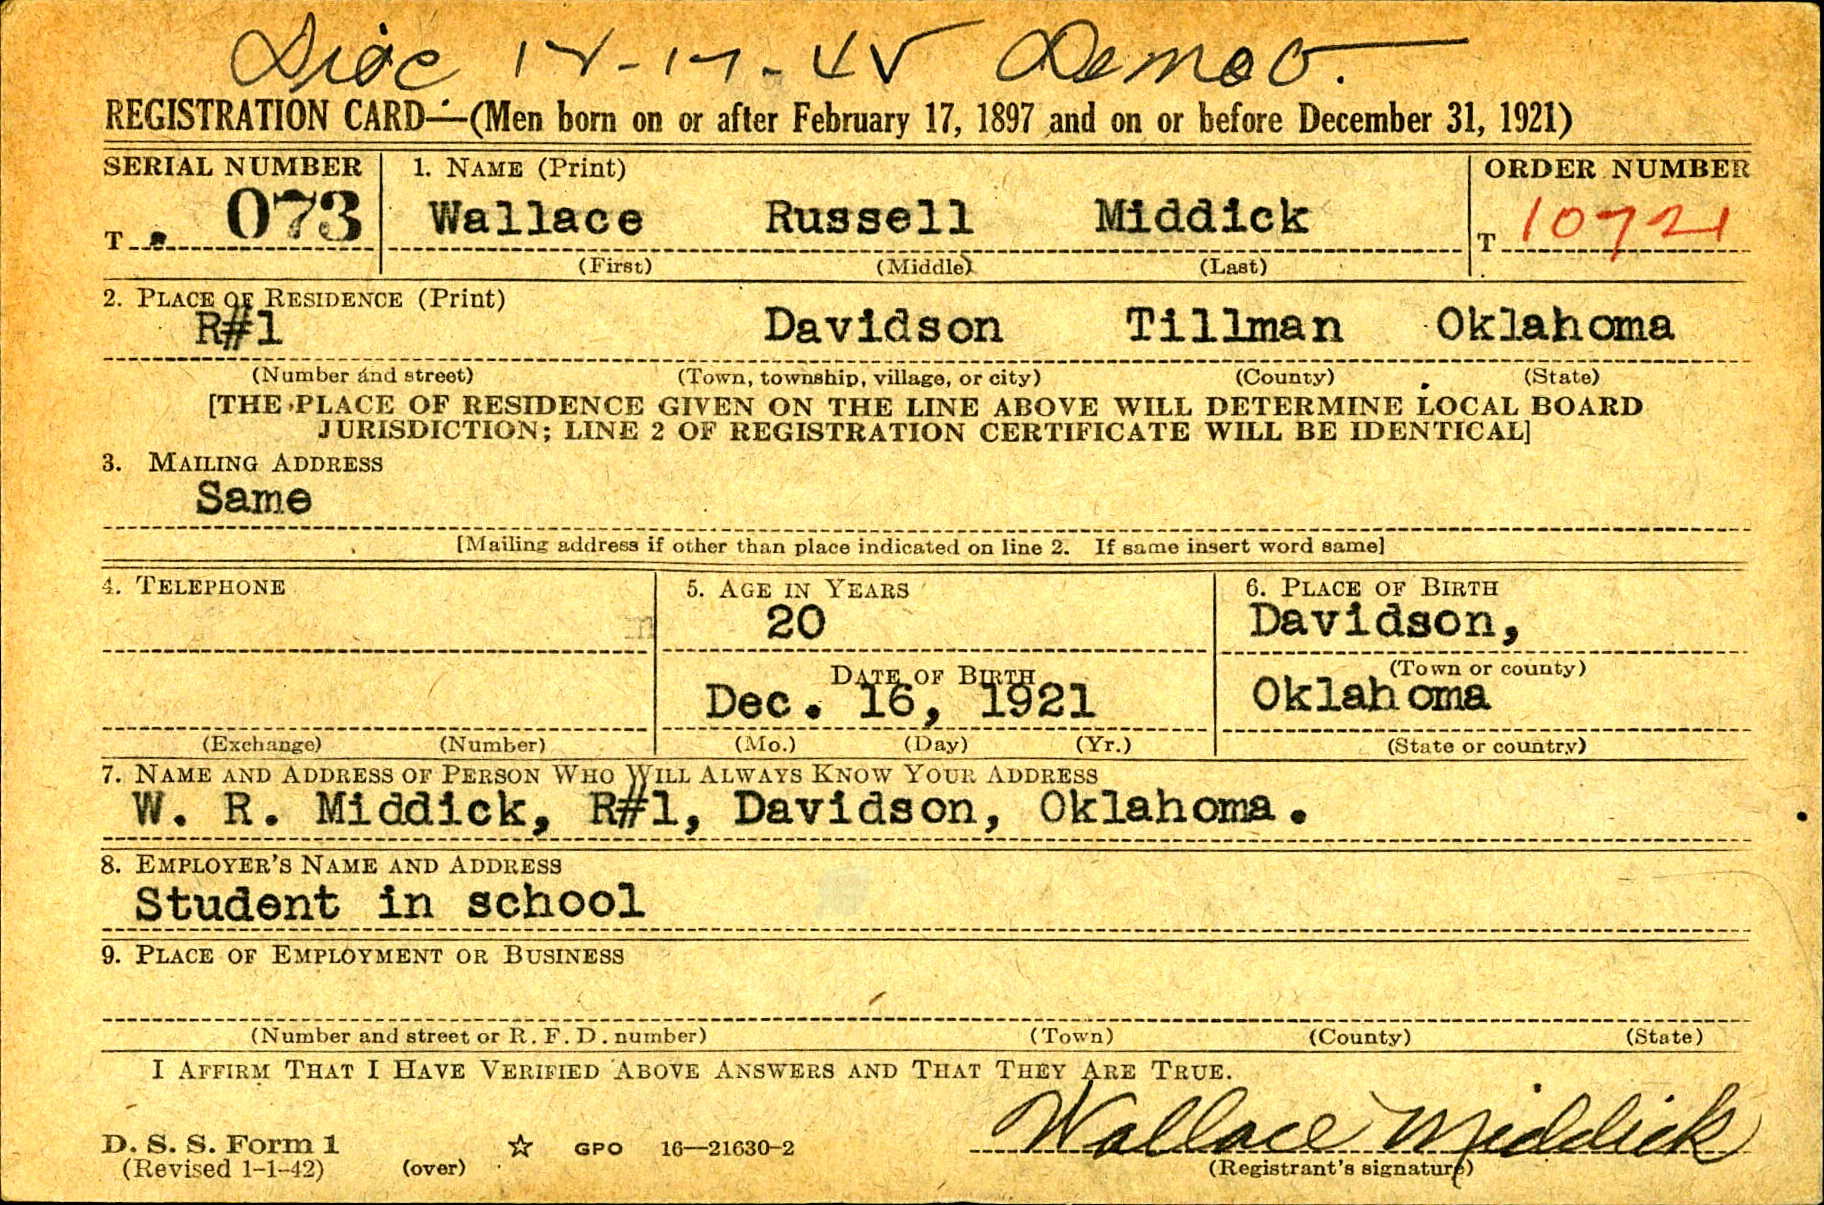 Disc 12-17-45 Demob.
REGISTRATION CARD—(Men born on or after February 17, 1897 and on or before December 31, 1921)
SERIAL NUMBER 1. NAME (Print) ORDER NUMBER
T 073 Wallace Russell Middick T 10721
(First) (Middle) (Last)
2. PLACE OF RESIDENCE (Print)
R#1 Davidson Tillman Oklahoma
(Number and street) (Town, township, village, or city) (County) (State)
[THE PLACE OF RESIDENCE GIVEN ON THE LINE ABOVE WILL DETERMINE LOCAL BOARD
JURISDICTION; LINE 2 OF REGISTRATION CERTIFICATE WILL BE IDENTICAL]
3. MAILING ADDRESS
Same
[Mailing address if other than place indicated on line 2. If same insert word same]
4. TELEPHONE 5. AGE IN YEARS 6. PLACE OF BIRTH
20 Davidson,
DATE OF BIRTH (Town or county)
Dec. 16, 1921 Oklahoma
(Exchange) (Number) (Mo.) (Day) (Yr.) (State or country)
7. NAME AND ADDRESS OF PERSON WHO WILL ALWAYS KNOW YOUR ADDRESS
W. R. Middick, R#1, Davidson, Oklahoma.
8. EMPLOYER'S NAME AND ADDRESS
Student in school
9. PLACE OF EMPLOYMENT OR BUSINESS
(Number and street or R. F. D. number) (Town) (County) (State)
I AFFIRM THAT I HAVE VERIFIED ABOVE ANSWERS AND THAT THEY ARE TRUE.
D. S. S. Form 1 ☆ GPO 16—21630-2 Wallace Middick
(Revised 1-1-42) (over) (Registrant's signature)